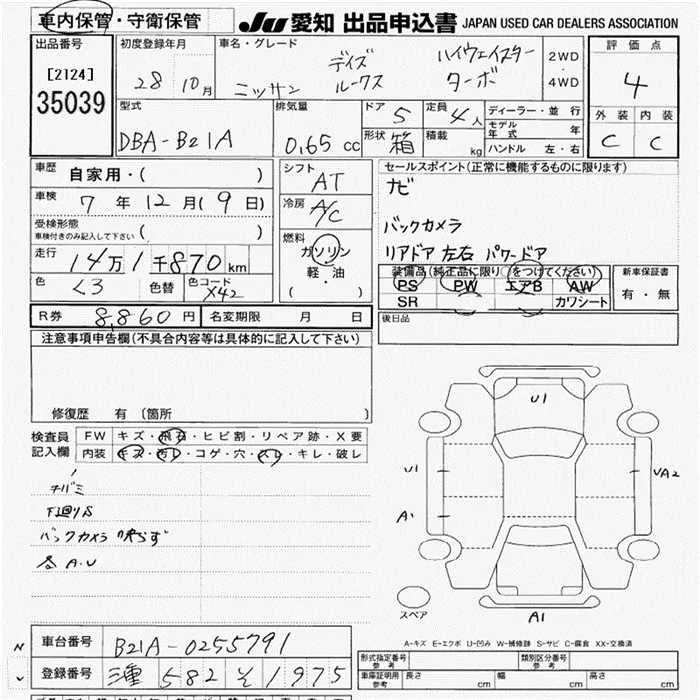 車内保管・守衛保管
JU 愛知 出品申込書 JAPAN USED CAR DEALERS ASSOCIATION
出品番号
[2124]
35039
初度登録年月
28 10月
車名・グレード
ニッサン デイズ ルークス ハイウェイスター ターボ
2WD
・
4WD
評価点
4
外装 内装
C C
型式
DBA-B21A
排気量
0.65 cc
ドア 5
形状 箱
定員 4人
積載 kg
ディーラー・並行
モデル年式 年
ハンドル 左・右
車歴 自家用・( )
車検 7年12月(9日)
受検形態
車検付きのみ記入して下さい ( )
走行 14万1千870km
色 くろ 色替 色コード X42
シフト AT
冷房 A/C
燃料
ガソリン
軽・油
( )
セールスポイント(正常に機能するものに限ります)
ナビ
バックカメラ
リアドア 左右 パワードア
装備品(純正品に限り○をつけてください)
PS PW エアB AW
SR カワシート
新車保証書
有・無
R券 8,860円 名変期限 月 日
後日品
注意事項申告欄(不具合内容等は具体的に記入して下さい)
修復歴 有(箇所 )
検査員
記入欄
FW キズ・飛石・ヒビ割・リペア跡・X要
内装 キズ・汚レ・コゲ・穴・スレ・キレ・破レ
下廻りS
バックカメラ 映らず
各 A.U
U1
U1
A1
UA2
A1
スペア
A-キズ E-エクボ U-凹み W-補修跡 S-サビ C-腐食 XX-交換済
車台番号 B21A-0255791
登録番号 三重 582 そ 1975
形式指定番号
参考
類別区分番号
参考
車庫証明用
参考
長さ cm 幅 cm 高さ cm